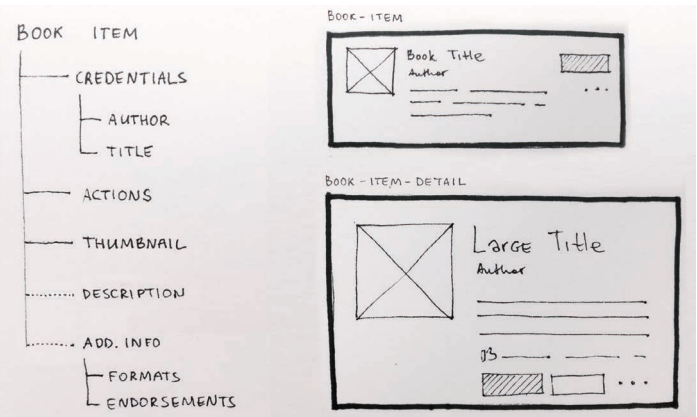 BOOK ITEM
CREDENTIALS
AUTHOR
TITLE
ACTIONS
THUMBNAIL
DESCRIPTION
ADD. INFO
FORMATS
ENDORSEMENTS
BOOK-ITEM
Book Title
Author
BOOK-ITEM-DETAIL
Large Title
Author